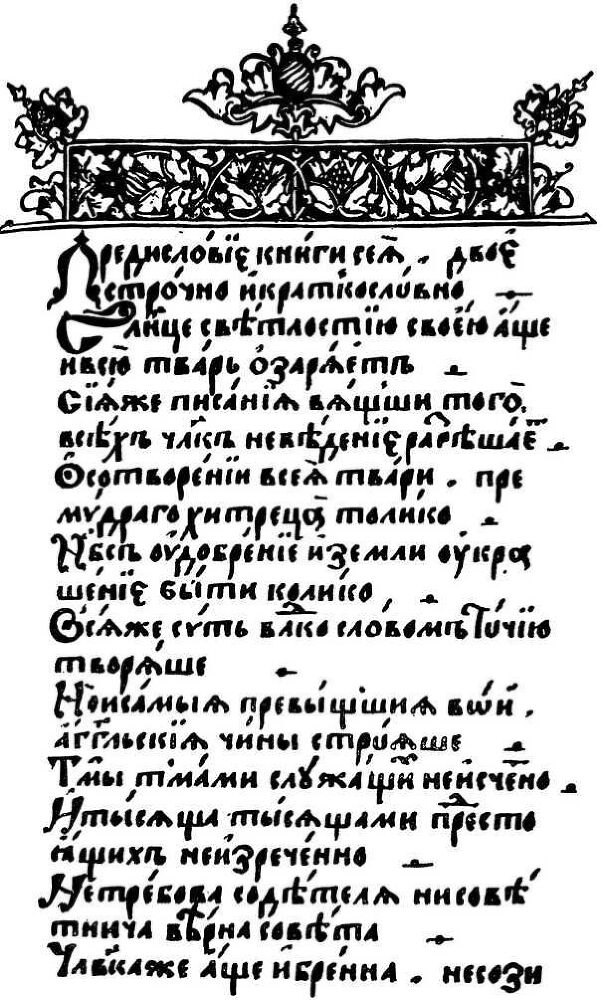 Предисло́вїе кни́ги сеѧ̀. двоѐ
стро́чно и҆краткосло́вно
Сл҃нце свѣ́тлостїю своѐю а҆́ще
ивсю̀ тва́рь ѻ҆заря́етъ
Сїѧ́же писа́нїѧ вѧ́щши того̀.
всѣ́хъ чл҃къ невѣ́денїе разрѣша́етъ
Ѻ҆сотворе́нїи всеѧ̀ тва́ри. пре
му́драго хитреца̀ толи́ко
Нб҃съ ѹ҆добре́нїе и҆земли ѹ҆кра
ше́нїе бы́ти коли́ко
Всѧ́же су́ть вл҃ко сло́вомъ То́чїю
творѧ́ше
Нои҆са́мыѧ превы́шшиѧ вѡ́и.
а҆́гг҃льскїѧ чи́ны стро́ѧше
Тмы̀ тма́ми слу́жащїи неи҆счетно
Нты́сѧща ты́сѧщами пр҇есто
ѧ́щихъ неи҆зрече́нно
Нетре́бова содѣ́телѧ нисовѣ́
тнича вѣ́рна совѣ́та
Чл҃вѣ́каже а҆́ще и҆бре́нна. несози